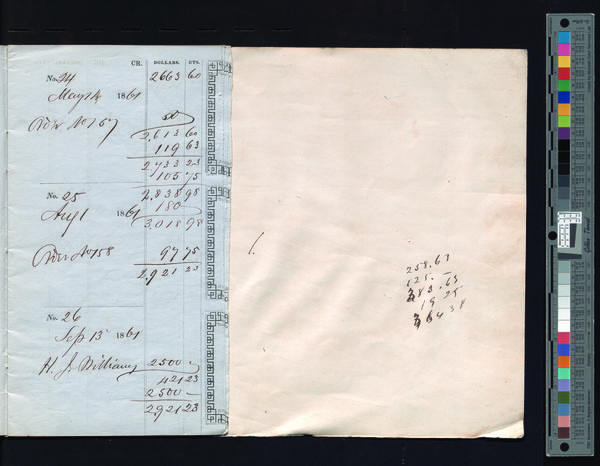 CR. DOLLARS. CTS.
No. 24 2663 60
May 14 1861
No 157 50
2,613 60
119 63
2,733 23
105 75
No. 25 2,838 98
Aug 1 1861 180
3,018 98
No 158 97 75
2,921 23
No. 26
Sep 13 1861
H. J. Williams 2500 –
421 23
2500 –
2,921 23
258.63
125. –
383.63
19 25
364 38